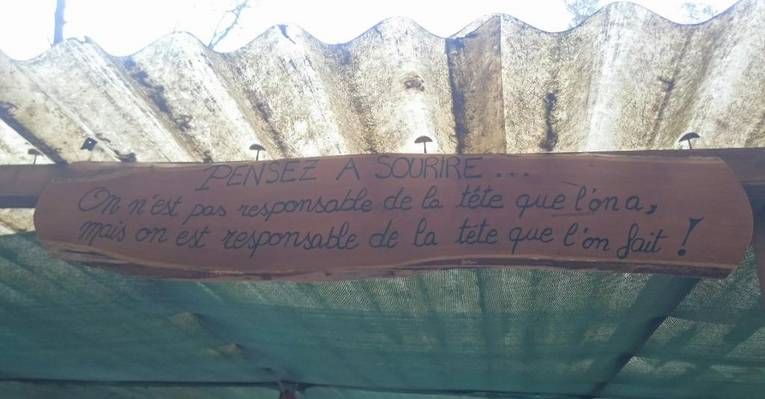 PENSEZ A SOURIRE ...
On n'est pas responsable de la tête que l'on a,
mais on est responsable de la tete que l'on fait !